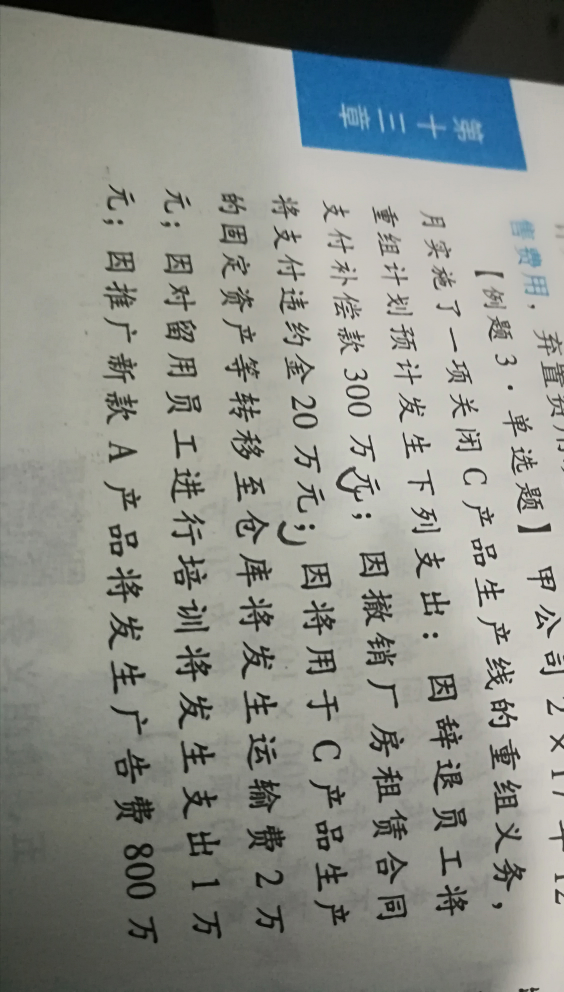 第十三章
售费用，弃置费用
【例题3·单选题】甲公司2×17年12
月实施了一项关闭C产品生产线的重组义务，
重组计划预计发生下列支出：因辞退员工将
支付补偿款300万元；因撤销厂房租赁合同
将支付违约金20万元；因将用于C产品生产
的固定资产等转移至仓库将发生运输费2万
元；因对留用员工进行培训将发生支出1万
元；因推广新款A产品将发生广告费800万